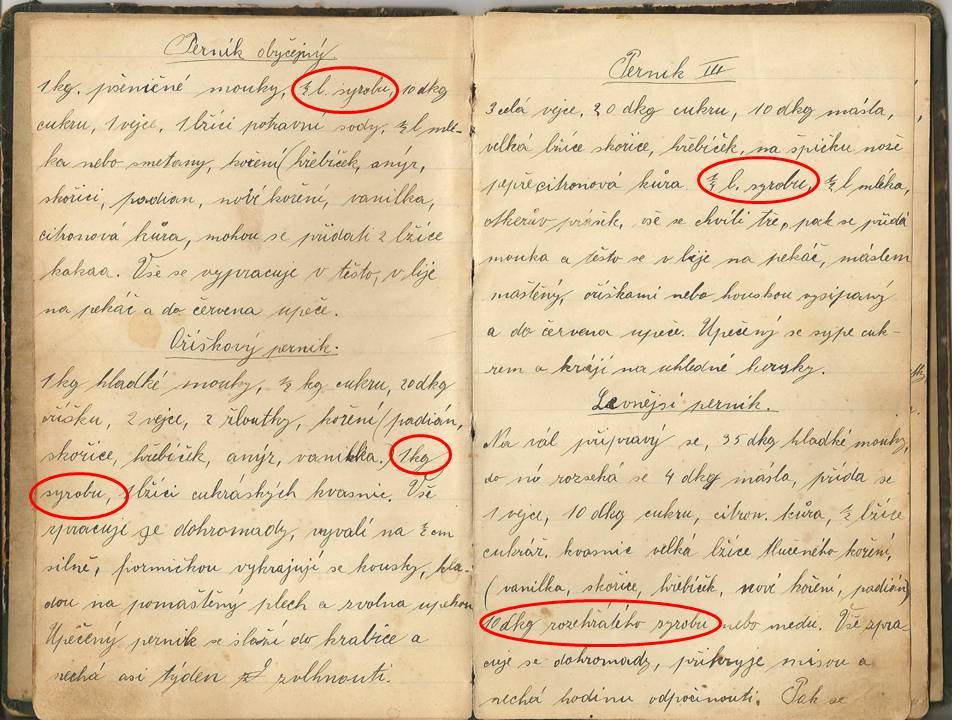 Perník obyčejný.
1 kg. pšeničné mouky, ½ l. syrobu, 10 dkg
cukru, 1 vejce, 1 lžíci potravní sody, ½ l mlé-
ka nebo smetany, koření (hřebíček, anýz,
skořici, padian, nové koření, vanilka,
citronová kůra, mohou se přidati 2 lžíce
kakaa. Vše se vypracuje v těsto, v lije
na pekáč a do červena upeče.
Oříškový perník.
1 kg hladké mouky, ½ kg cukru, 20 dkg
oříšku, 2 vejce, 2 žloutky, koření (padián,
skořice, hřebíček, anýz, vanilka.) 1 kg
syrobu, 1 lžíci cukrářských kvasnic. Vše
zpracuje se dohromady, vyválí na ½ cm
silně, formičkou vykrajují se kousky, kla-
dou na pomaštěný plech a zvolna upekou
Upečený perník se složí do krabice a
nechá asi týden zvlhnouti.
Perník III
3 celá vejce, 20 dkg cukru, 10 dkg másla,
velká lžíce skořice, hřebíček, na špičku nože
pepře citronová kůra ½ l. syrobu, ½ l mléka,
Otkerův prášek, vše se chvíli tře, pak se přidá
mouka a těsto se v lije na pekáč, máslem
maštěný, oříškami nebo houskou vysipaný
a do červena upeče. Upečený se sype cuk-
rem a krájí na uhledné kousky.
Levnější perník.
Na vál připravý se, 35 dkg hladké mouky,
do nó rozsehá se 4 dkg másla, přida se
1 vejce, 10 dkg cukru, citron. kůra, ½ lžíce
cukrář. kvasnic velká lžíce tlučeného koření,
(vanilka, skořice, hřebíček, nové koření, padián)
10 dkg rozehřátého syrobu nebo medu. Vše zpra-
cuje se dohromady, přikryje mísou a
nechá hodinu odpočinouti. Pak se